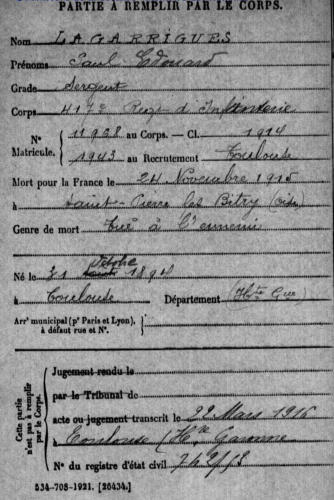 PARTIE À REMPLIR PAR LE CORPS.
Nom LAGARRIGUES
Prénoms Paul Edouard
Grade Sergent
Corps 417e Regt d'Infanterie
N° Matricule. 11968 au Corps. — Cl. 1914
1943 au Recrutement Toulouse
Mort pour la France le 24 Novembre 1915
à Saint-Pierre les Bitry (Oise)
Genre de mort Tué à l'ennemi
Né le 31 1894
à Toulouse Département (Hte Gne)
Arrt municipal (pr Paris et Lyon), à défaut rue et N°.
Cette partie n'est pas à remplir par le Corps.
Jugement rendu le
par le Tribunal de
acte ou jugement transcrit le 22 Mars 1916
à Toulouse (Hte Garonne
N° du registre d'état civil
534-708-1921. [26434.]